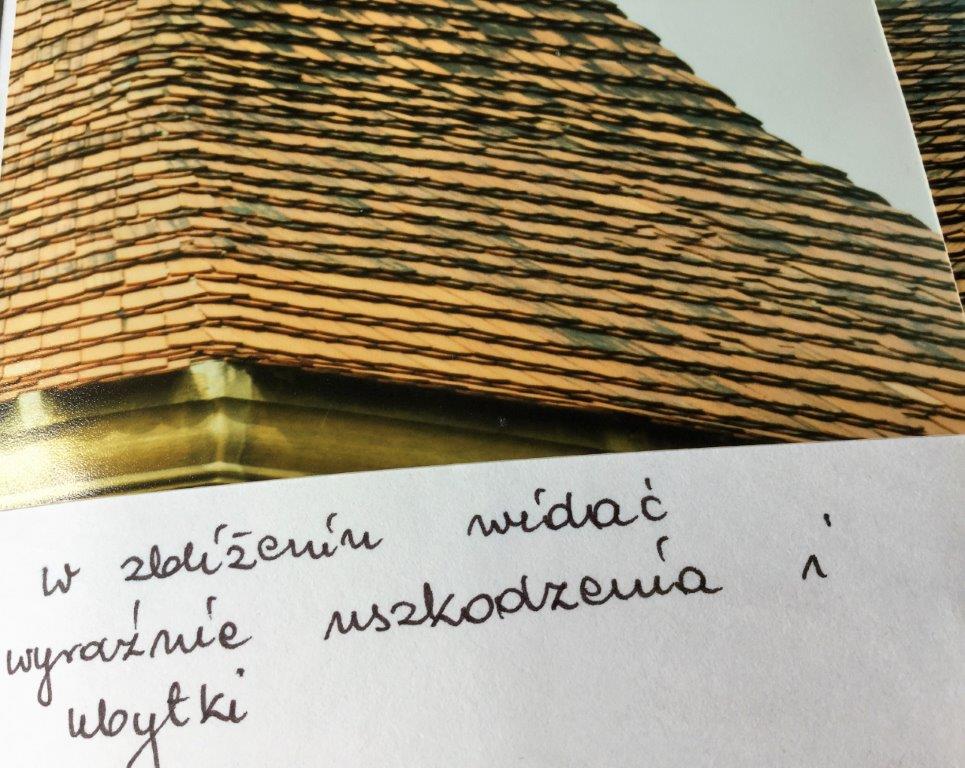 w zbliżeniu widać
wyraźnie uszkodzenia i
ubytki